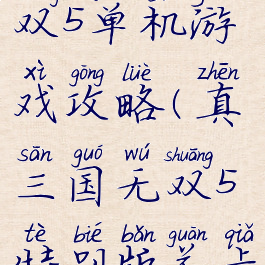 双5单机游
xì gōng lüè zhēn
戏攻略(真
sān guó wú shuāng
三国无双5
tè bié bǎn guān qiǎ
特别版关卡